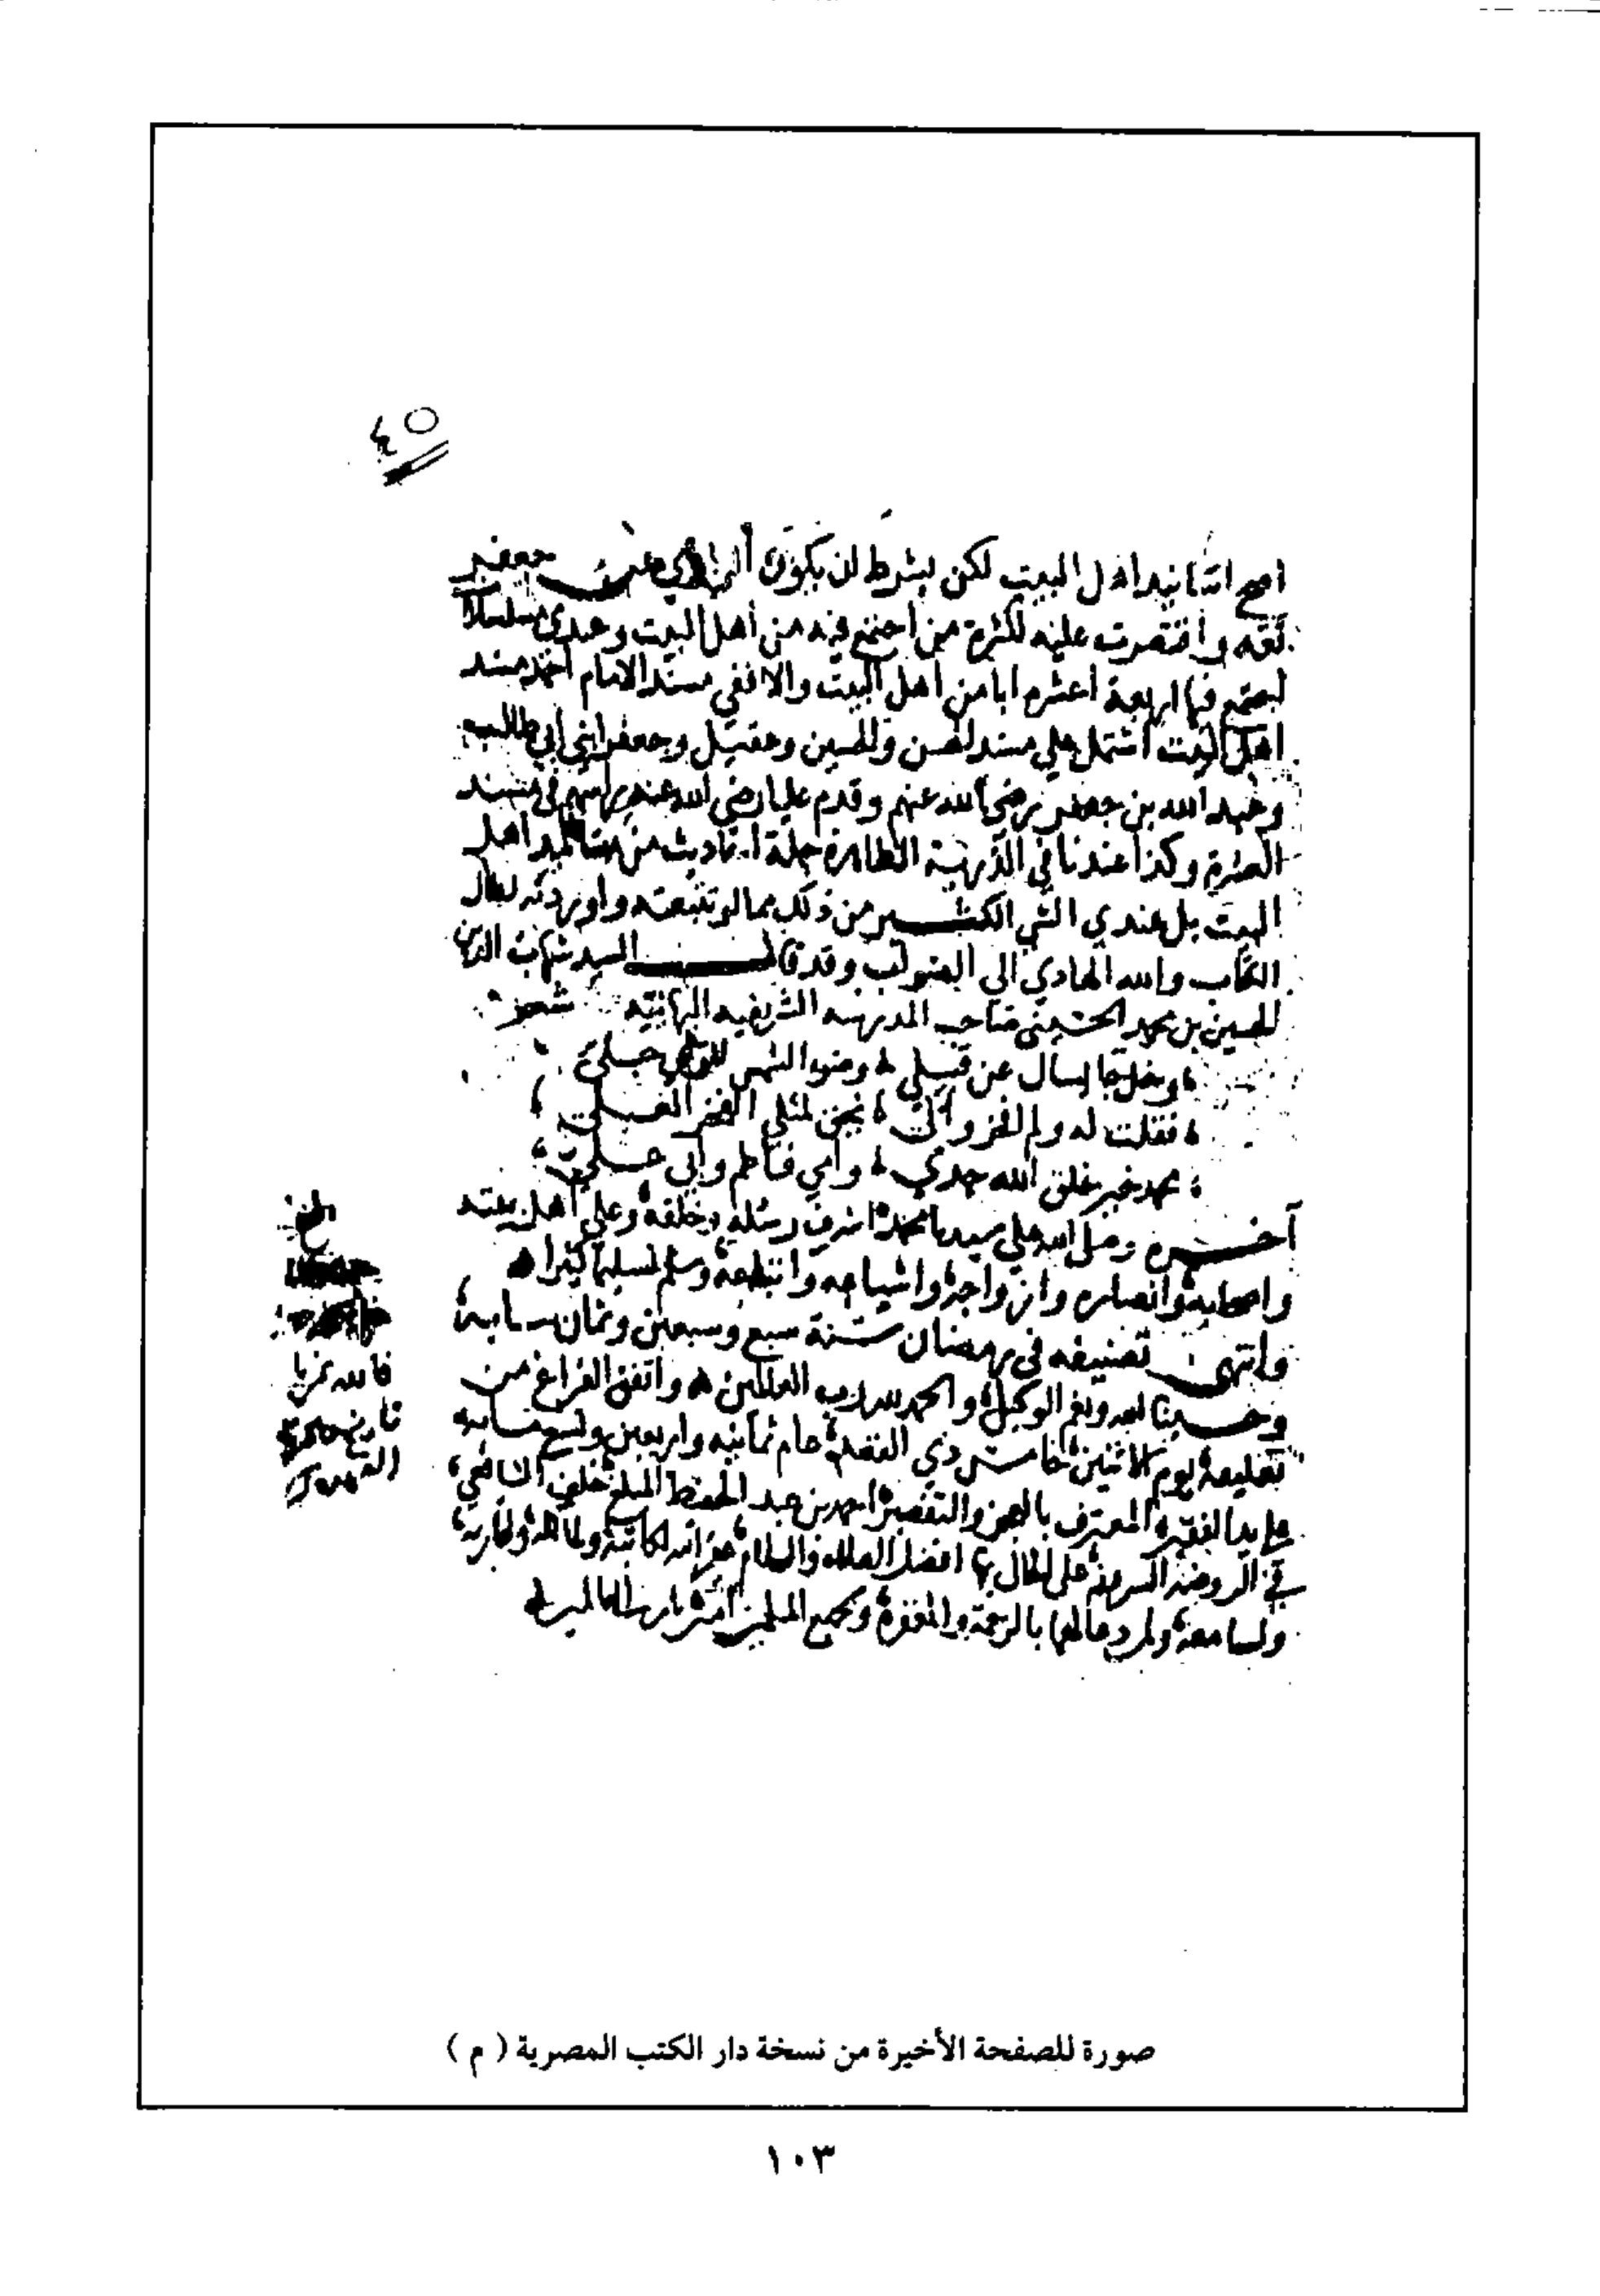 ٤٥
اصح اسانيد اهل البيت لكن بشرط ان يكون الراوي عن جعفر
ثقه واقتصرت عليه لكثرة من اجتمع فيه من اهل البيت وعندي مسلسلا
اجتمع فيها اربعة اعشر ابا من اهل البيت والا ففي مسند الامام احمد مسند
اهل البيت اشتمل علي مسند الحسن والحسين وعقيل وجعفر ابني ابي طالب
وعبد الله بن جعفر رضي الله عنهم وقدم عليا رضي الله عنه في مسند
العشرة وكذا عندنا في الذرية الطاهرة جملة احاديث من اهل
البيت بل عندي الشي الكثير من ذلك مما لو تتبعته واوردته لطال
الكتاب والله الهادي الي الصواب وقد قال السيد شهاب الدين
الحسين بن محمد الحسيني صاحب المدرسه الشريفيه البهائيه شعر
يسال عن قبيلي وضوء الشمس للرائي جلي
فقلت له ولم افخر واني لمثلي الفخر العلي
محمد خير خلق الله جدي وامي فاطم وابي علي
آخره وصلى الله علي سيدنا محمد اشرف رسله وخلقه وعلي اهل بيته
واصحابه وانصاره وازواجه واشياعه واتباعه وسلم تسليما كثيرا
وانتهى تصنيفه في رمضان سنة سبع وسبعين وثمان ماية
وحسبنا الله ونعم الوكيل والحمد لله رب العالمين واتفق الفراغ من
تعليقه يوم الاثنين خامس ذي القعدة عام ثمانيه واربعين وتسعمايه
علي يد الفقير المعترف بالعجز والتقصير احمد بن عبد الشافعي
في الروضه علي الحال بها افضل الصلاه والسلام غفر الله لكاتبه ولمالكه ولقاريه
ولسامعه ولمن دعا لهما بالرحمة والمغفرة ولجميع المسلمين امين يارب العالمين
صورة للصفحة الأخيرة من نسخة دار الكتب المصرية ( م )
١٠٣